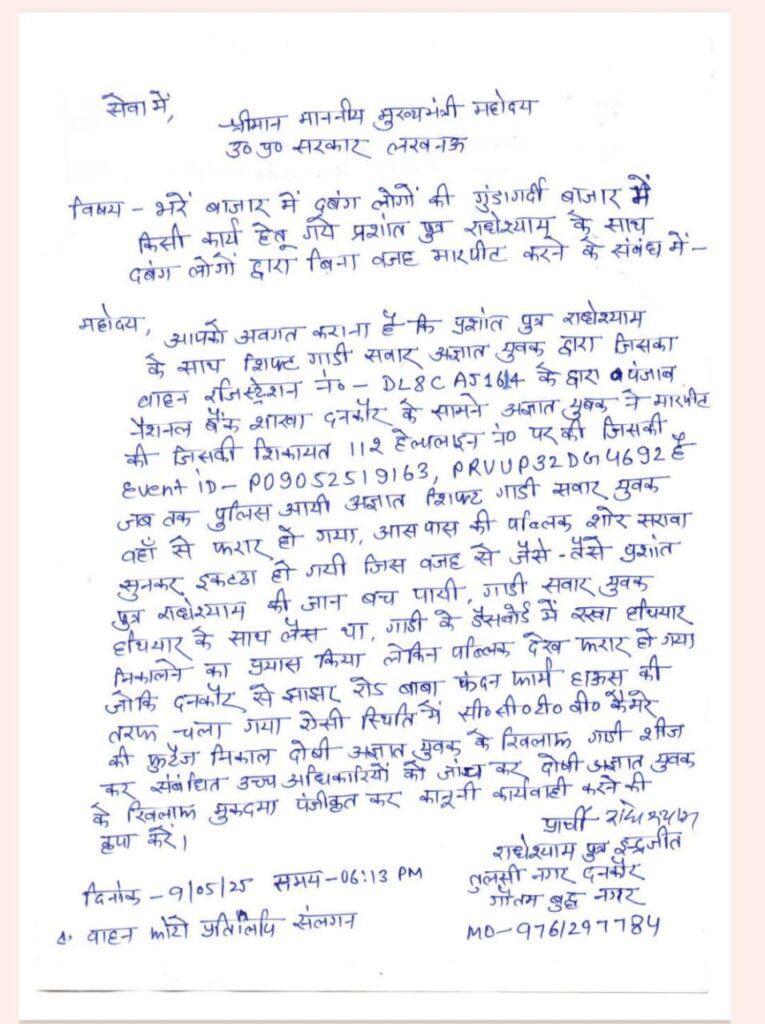 सेवा में,
श्रीमान माननीय मुख्यमंत्री महोदय
उ० प्र० सरकार लखनऊ
विषय - भरें बाजार में दबंग लोगों की गुंडागर्दी बाजार में
किसी कार्य हेतू गये प्रशांत पुत्र राधेश्याम के साथ
दबंग लोगों द्वारा बिना वजह मारपीट करने के संबंध में -
महोदय, आपको अवगत कराना है कि प्रशांत पुत्र राधेश्याम
के साथ शिफ्ट गाडी सवार अज्ञात युवक द्वारा जिसका
वाहन रजिस्ट्रेशन नं० - DL8C AJ1614 के द्वारा पंजाब
नैशनल बैंक शाखा दनकौर के सामने अज्ञात युवक ने मारपीट
की जिसकी शिकायत 112 हेल्पलाइन नं० पर की जिसकी
Event ID - P09052519163, PRVUP32DG4692 है
जब तक पुलिस आयी अज्ञात शिफ्ट गाडी सवार युवक
वहाँ से फरार हो गया, आस पास की पब्लिक शोर सरावा
सुनकर इकटठा हो गयी जिस वजह से जैसे - तैसे प्रशांत
पुत्र राधेश्याम की जान बच पायी, गाडी सवार युवक
हथियार के साथ लैस था, गाडी के डैसबोर्ड में रखा हथियार
निकालने का प्रयास किया लेकिन पब्लिक देख फरार हो गया
जोकि दनकौर से झाझर रोड बाबा फार्म हाऊस की
तरफ चला गया ऐसी स्थिति में सी० सी० टी० वी० कैमरे
की फुटैज निकाल दोषी अज्ञात युवक के खिलाफ गाडी शीज
कर संबंधित उच्च अधिकारियों को जांच कर दोषी अज्ञात युवक
के खिलाफ मुकदमा पंजीकृत कर कानूनी कार्यवाही करने की
कृपा करें।
प्रार्थी राधेश्याम
राधेश्याम पुत्र इन्द्रजीत
तुलसी नगर दनकौर
गौतम बुद्ध नगर
MO - 9761297784
दिनांक - 9/05/25 समय - 06:13 PM
वाहन फोटो प्रतिलिपि संलगन